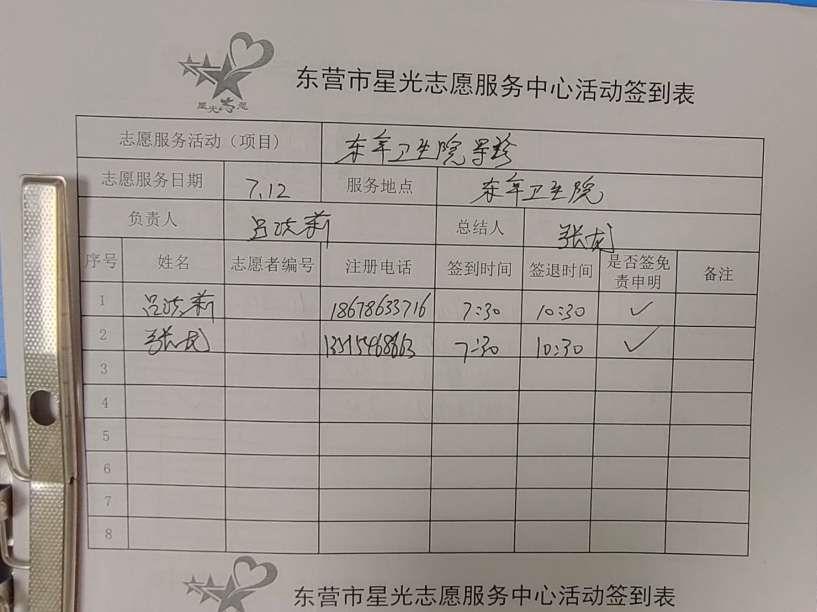 星光志愿
东营市星光志愿服务中心活动签到表
志愿服务活动（项目） 东年卫生院导诊
志愿服务日期 7.12 服务地点 东年卫生院
负责人 吕洪莉 总结人 张龙
序号 姓名 志愿者编号 注册电话 签到时间 签退时间 是否签免责申明 备注
1 吕洪莉 18678633716 7:30 10:30 ✓
2 张龙 13515468663 7:30 10:30 ✓
3
4
5
6
7
8
东营市星光志愿服务中心活动签到表